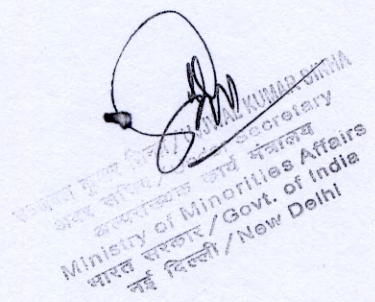 KUMAR SINHA
अवर सचिव / Under Secretary
अल्पसंख्यक कार्य मंत्रालय
Ministry of Minorities Affairs
भारत सरकार / Govt. of India
नई दिल्ली / New Delhi